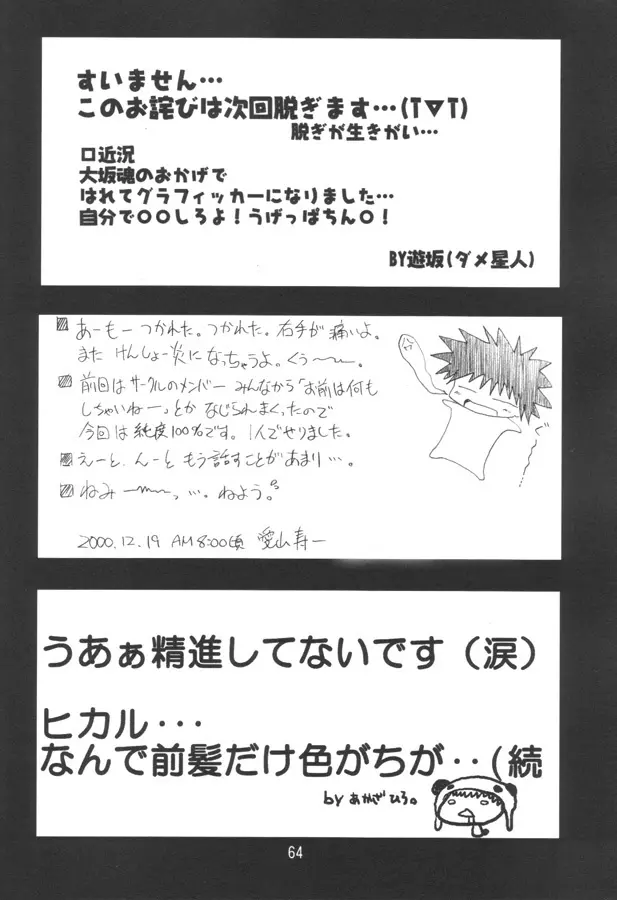 すいません…
このお詫びは次回脱ぎます…(T▽T)
脱ぎが生きがい…
口近況
大坂魂のおかげで
はれてグラフィッカーになりました…
自分で〇〇しろよ！うげっぱちん〇！
BY遊坂(ダメ星人)
あーもーつかれた。つかれた。右手が痛いよ。
また けんしょー炎になっちゃうよ。くぅ〜〜。
前回はサークルのメンバー みんなから「お前は何も
しちゃいねー」とか なじられまくったので
今回は純度100%です。1人でやりました。
えーと、んーと もう話すことがあまり…。
ねみー〜〜っ、…。ねよう。
2000.12.19 AM8:00頃 愛山寿一
ぐぅ
うあぁ精進してないです（涙）
ヒカル･･･
なんで前髪だけ色がちが･･(続
by あかざひろ。
64